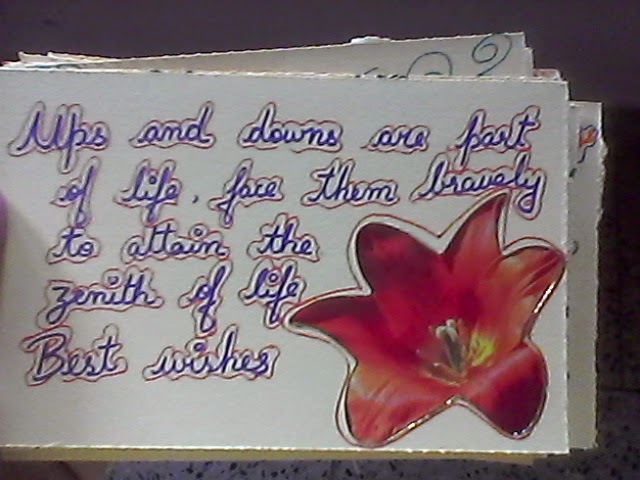 Ups and downs are part
of life, face them bravely
to attain the
zenith of life
Best wishes